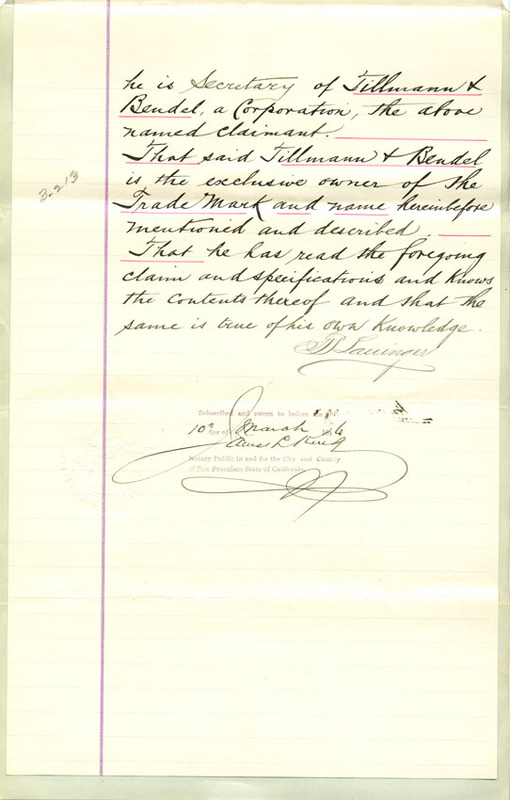 he is Secretary of Tillmann &
Bendel, a Corporation, the above
named claimant.
That said Tillmann & Bendel
is the exclusive owner of the
Trade Mark and name hereinbefore
mentioned and described.
That he has read the foregoing
claim and specifications and knows
the contents thereof and that the
same is true of his own knowledge.
3-213
Subscribed and sworn to before
10th day of March
Notary Public in and for the City and County
of San Francisco State of California.